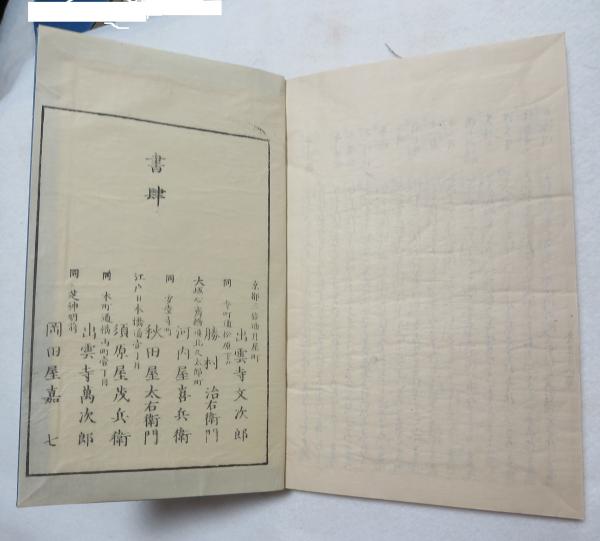 書肆
京都三條通升屋町
出雲寺文次郎
同 寺町通松原下ル
勝村治右衛門
大坂心斎橋通北久太郎町
河内屋喜兵衛
同 安堂寺町
秋田屋太右衛門
江戸日本橋通壹丁目
須原屋茂兵衛
同 本町通橫山町壹丁目
出雲寺萬次郎
同 芝神明前
岡田屋嘉七